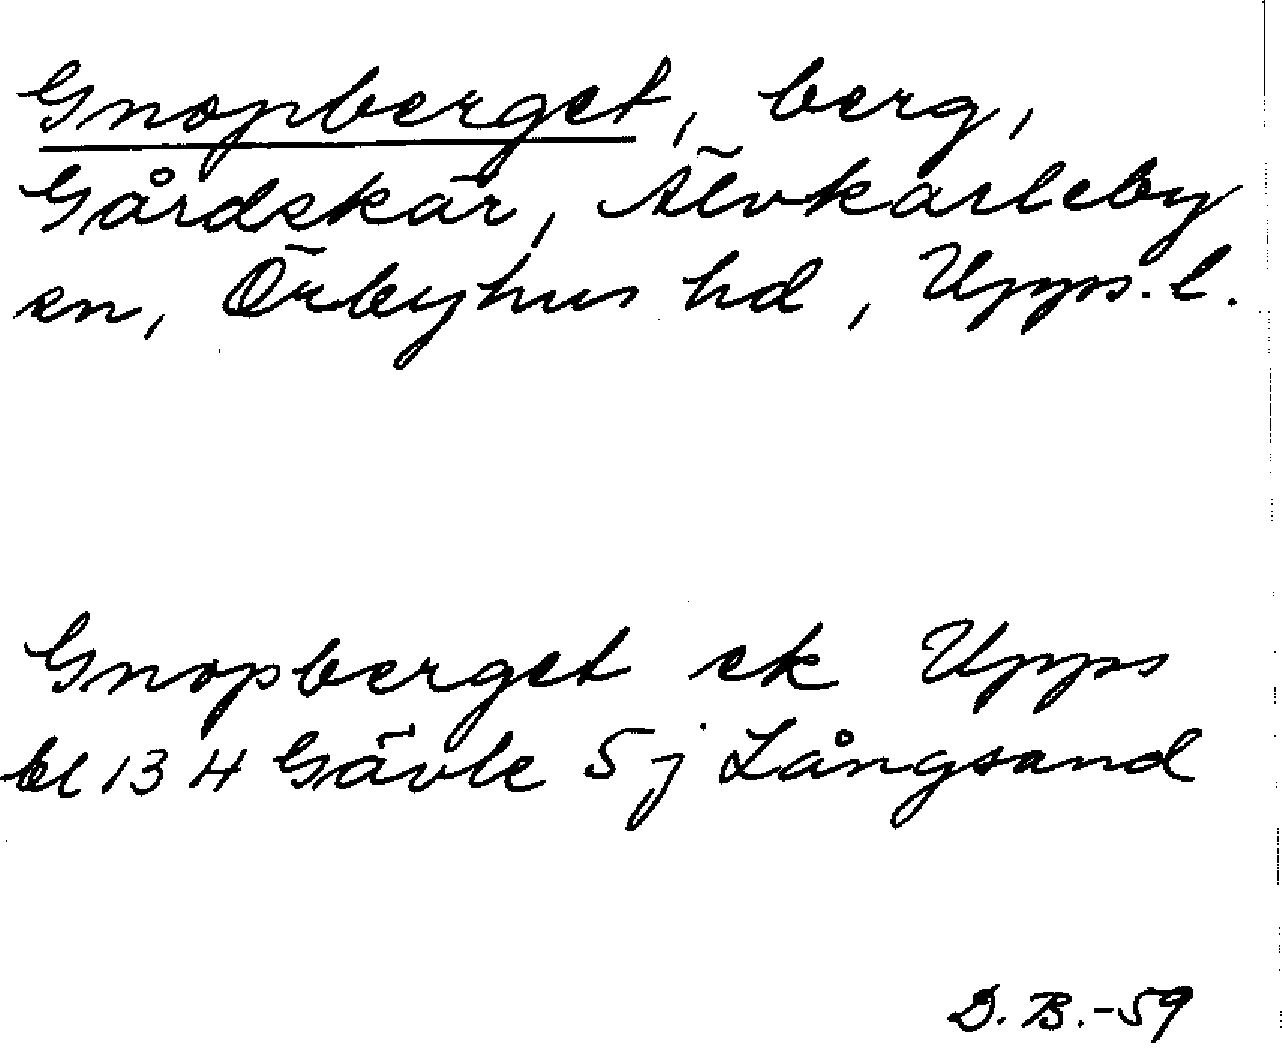 Gnopberget, berg,
Gårdskär, Älvkarleby
sn, Örbyhus hd, Upps. l.
Gnopberget ek Upps
bl 13 4 Gävle 5 j Långsand
D. B. -59